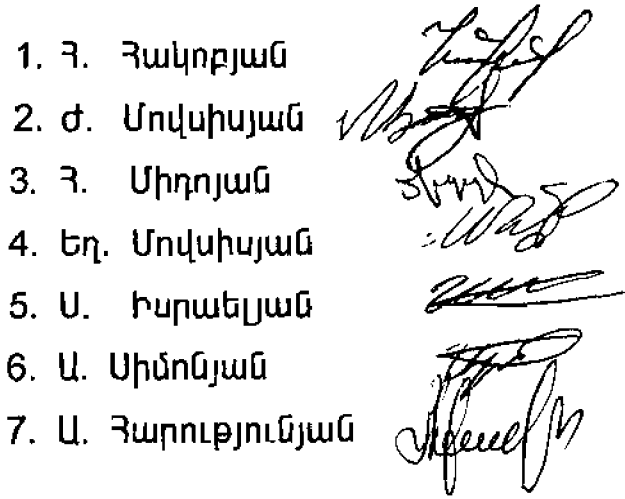 1. Հ. Հակոբյան
2. Ժ. Մովսիսյան
3. Հ. Միդոյան
4. Եղ. Մովսիսյան
5. Ս. Իսրաելյան
6. Ա. Սիմոնյան
7. Ա. Հարությունյան